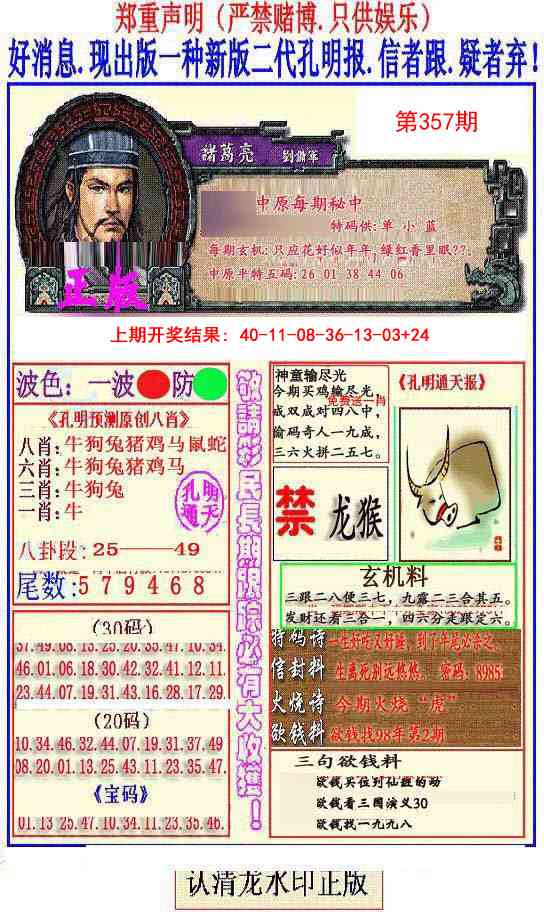 郑重声明（严禁赌博.只供娱乐）
好消息.现出版一种新版二代孔明报.信者跟.疑者弃!
第357期
諸葛亮 劉備軍
中原每期秘中
特码供:单 小 蓝
每期玄机:只应花好似年年 绿红香里眠??
中原平特五码:26 01 38 44 06
正版
上期开奖结果: 40-11-08-36-13-03+24
波色: 一波 防
《孔明预测原创八肖》
八肖:牛狗兔猪鸡马鼠蛇
六肖:牛狗兔猪鸡马
三肖:牛狗兔
一肖:牛
孔明
通天
八卦段:25——49
尾数:579468
(30码)
37.49.08.13.25.20.35.47.10.34.
46.01.06.18.30.42.32.41.12.11.
23.44.07.19.31.43.16.28.17.29.
(20码)
10.34.46.32.44.07.19.31.37.49
08.20.01.13.25.43.11.23.35.47.
《宝码》
01.13.25.47.10.34.11.23.35.46.
敬請彩民長期跟踪必有大收獲!
神童输尽光
今期买鸡输尽光,
免费送一肖
成双成对四八中,
偷码奇人一九成,
三六火拼二五七。
《孔明通天报》
禁
龙猴
玄机料
三跟二八便三七，九露二三合其五。
发财还看三合一，四六分走跟定六。
特码诗 一生好吃又好睡，到了年尾必杀之。
信封料 生离死别远悠悠。 密码:8985!
火烧诗 今期火烧“虎”
欲钱料 欲钱找98年第2期
三句欲钱料
欲钱买位到仙遊的动
欲钱看三国演义30
欲钱找一九九八
认清龙水印正版